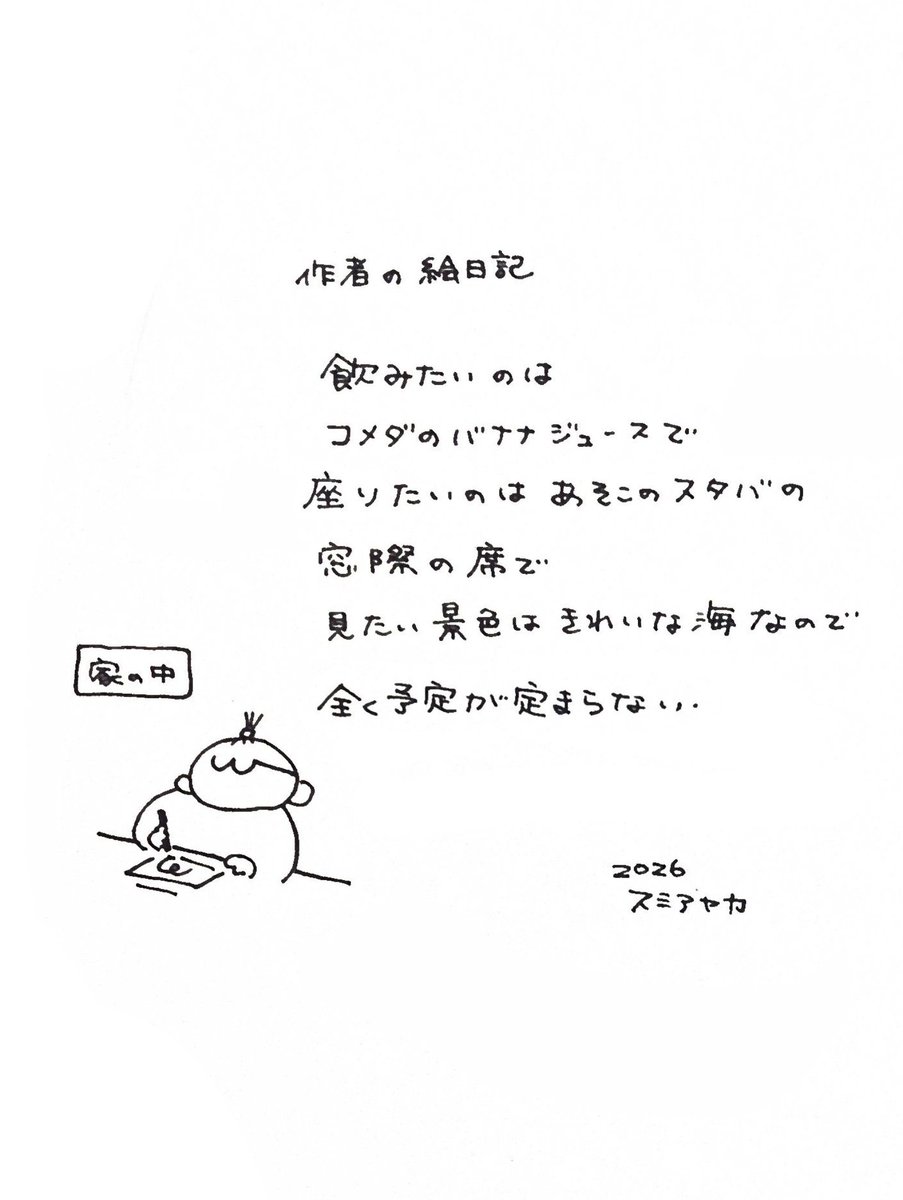 作者の絵日記
飲みたいのは
コメダのバナナジュースで
座りたいのは あそこのスタバの
窓際の席で
見たい景色は きれいな海なので
全く予定が定まらない.
家の中
2026
スミアヤカ